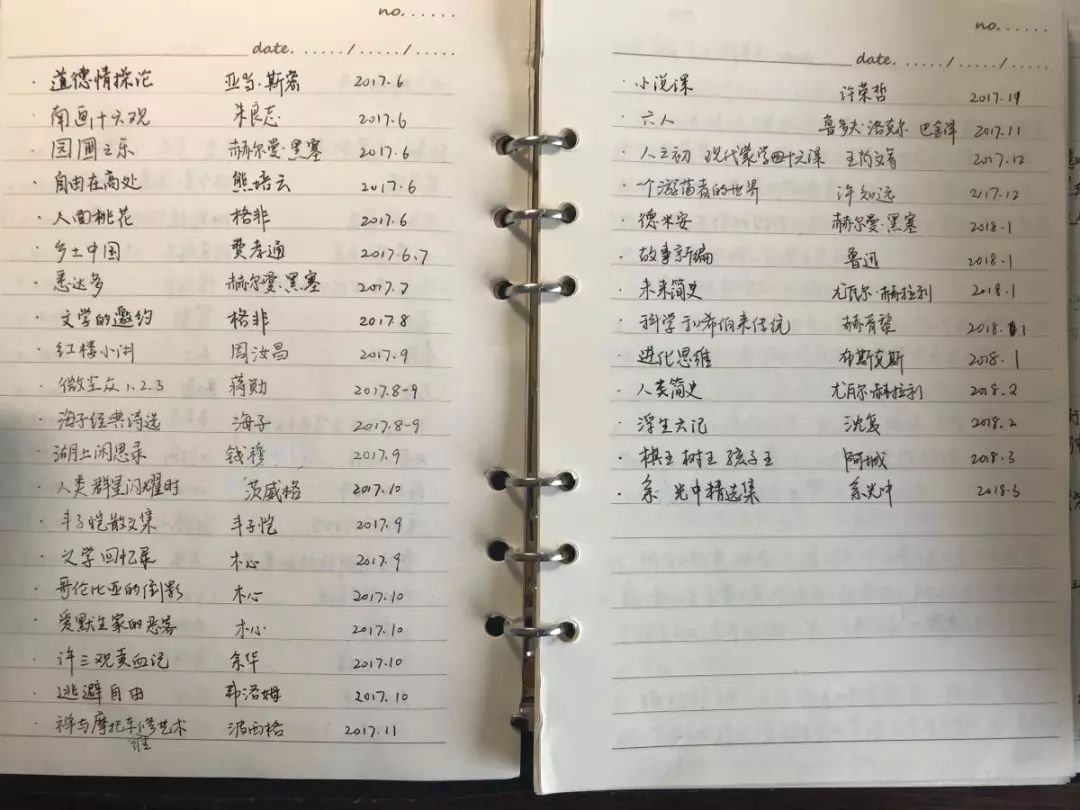 no......
date....../....../.....
· 道德情操论 亚当·斯密 2017.6
· 南画十六观 朱良志 2017.6
· 园圃之乐 赫尔曼·黑塞 2017.6
· 自由在高处 熊培云 2017.6
· 人面桃花 格非 2017.6
· 乡土中国 费孝通 2017.6.7
· 悉达多 赫尔曼·黑塞 2017.7
· 文学的邀约 格非 2017.8
· 红楼小讲 周汝昌 2017.9
· 微尘众1.2.3 蒋勋 2017.8-9
· 海子经典诗选 海子 2017.8-9
· 湖上闲思录 钱穆 2017.9
· 人类群星闪耀时 茨威格 2017.10
· 丰子恺散文集 丰子恺 2017.9
· 文学回忆录 木心 2017.9
· 哥伦比亚的倒影 木心 2017.10
· 爱默生家的恶客 木心 2017.10
· 许三观卖血记 余华 2017.10
· 逃避自由 弗洛姆 2017.10
· 禅与摩托车维修艺术 波西格 2017.11
no......
date....../....../.....
· 小说课 许荣哲 2017.11
· 六人 鲁多夫·洛克尔 巴金译 2017.11
· 人之初 现代蒙学四十六课 2017.12
· 一个游荡者的世界 许知远 2017.12
· 德米安 赫尔曼·黑塞 2018.1
· 故事新编 鲁迅 2018.1
· 未来简史 尤瓦尔·赫拉利 2018.1
· 科学于希伯来传统 赫胥黎 2018.1
· 进化思维 布斯克斯 2018.1
· 人类简史 尤瓦尔·赫拉利 2018.2
· 浮生六记 沈复 2018.2
· 棋王 树王 孩子王 阿城 2018.3
· 余光中精选集 余光中 2018.3